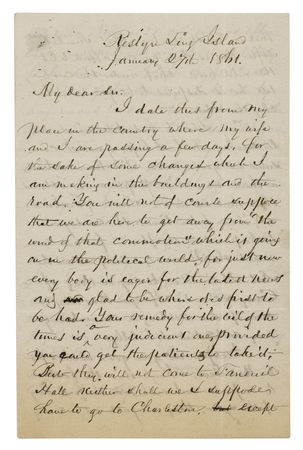 Roslyn Long Island
January 27th 1861.
My dear Sir.
I date this from my
place in the country where my wife
and I are passing a few days, for
the sake of some changes which I
am making in the buildings and the
road. You will not of course suppose
that we are here to get away from "the
wind of that commotion" which is going
on in the political world, for just now
every body is eager for the latest news
and glad to be where it is first to
be had. Your remedy for the evil of the
times is a very judicious one, provided
you could get the patients to take it;
But they will not come to Faneuil
Hall neither shall we I suppose
have to go to Charleston, but except